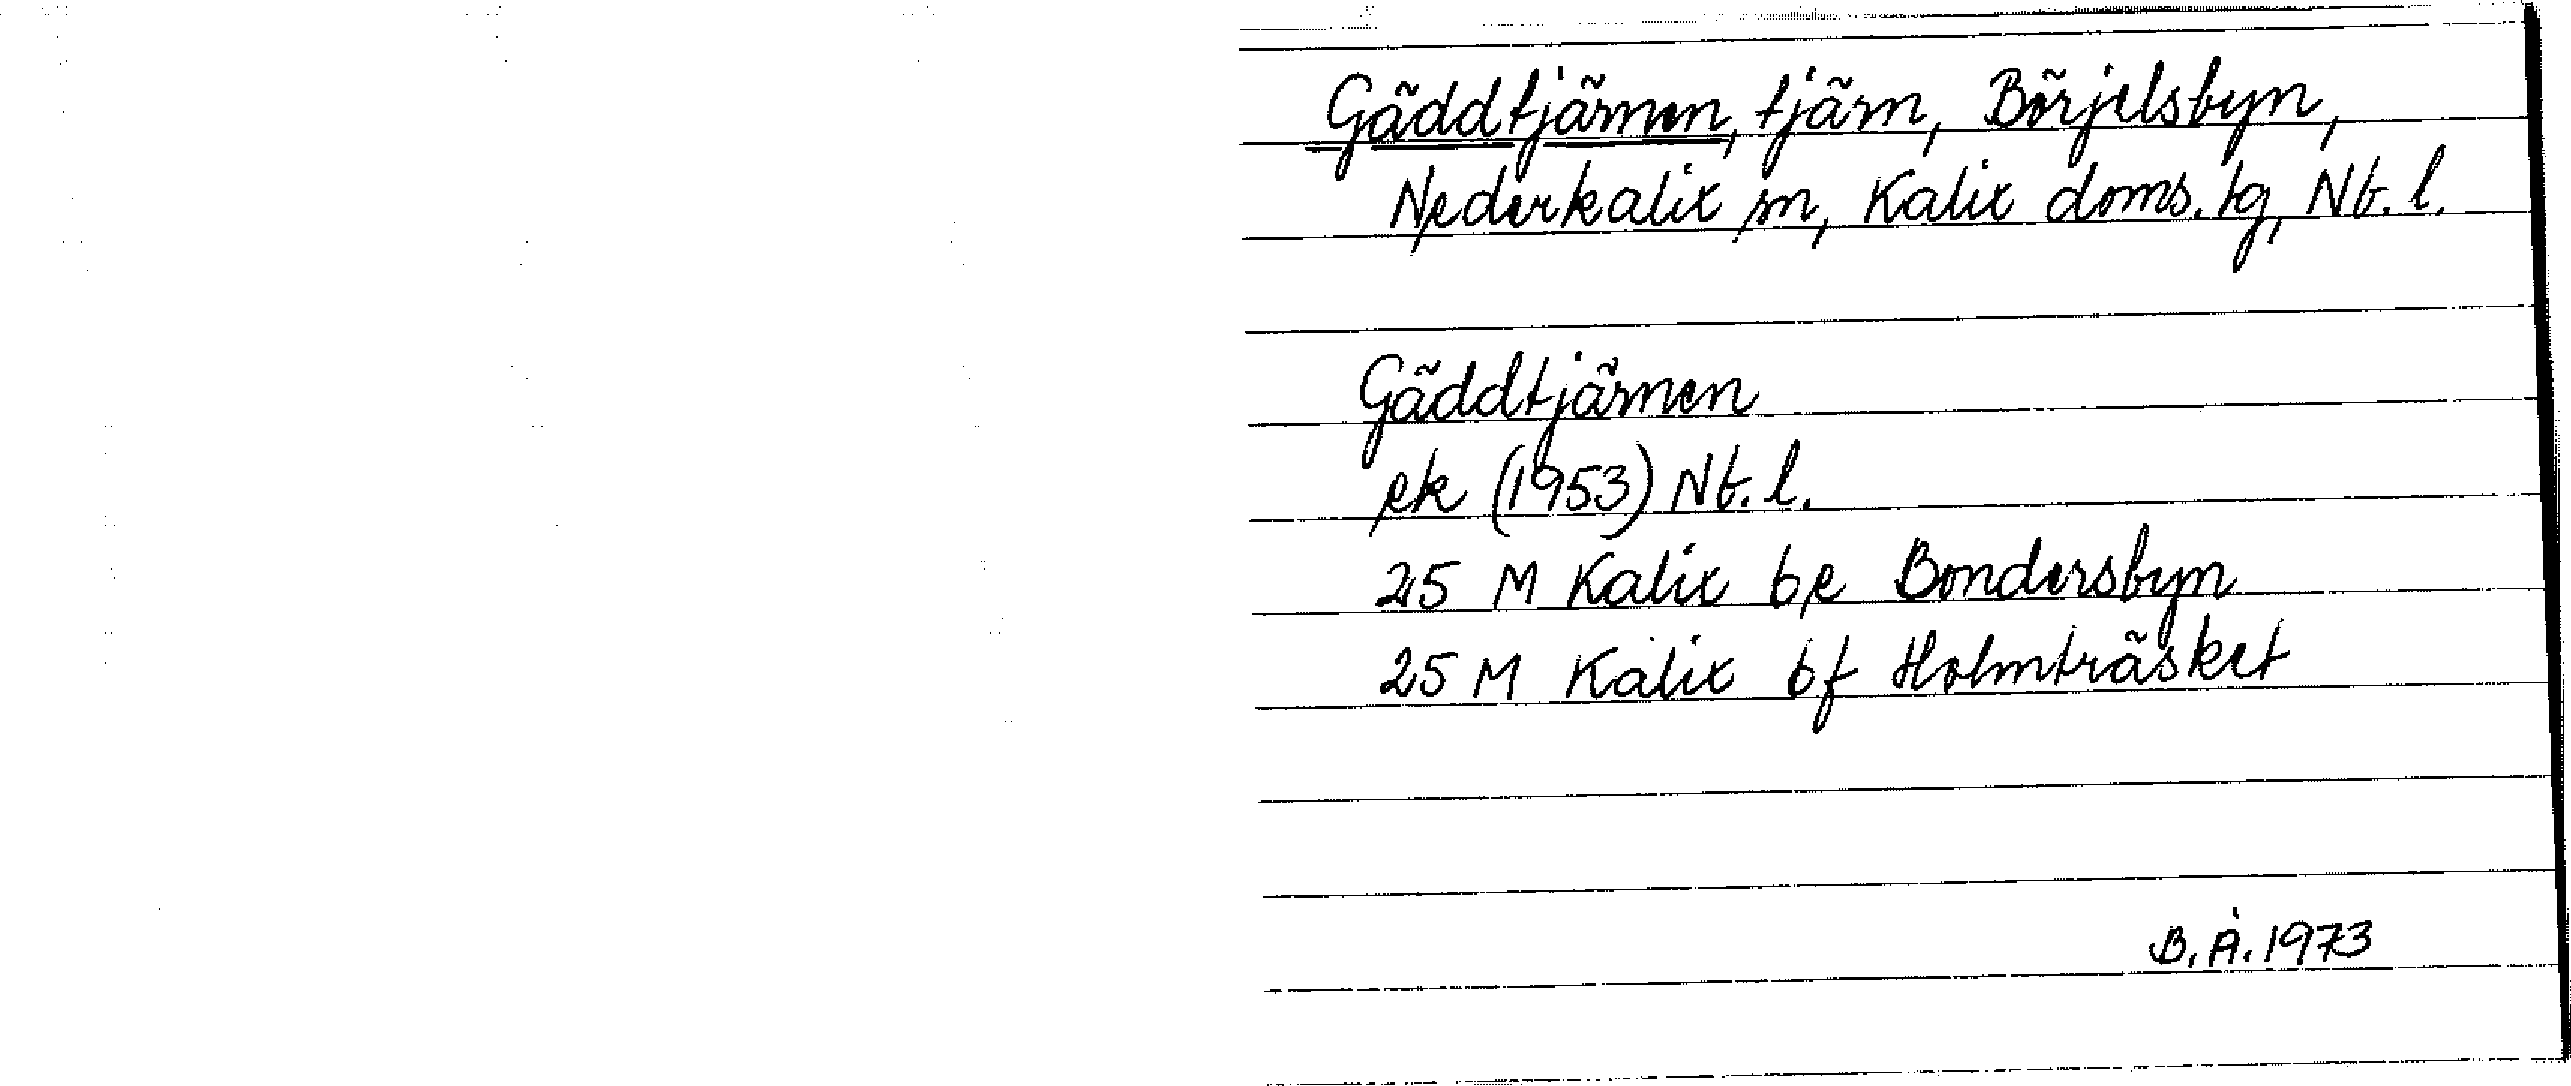 Gäddtjärnen, tjärn, Börjelsbyn,
Nederkalix sn, Kalix doms. tg, Nb. l.
Gäddtjärnen
ek (1953) Nb. l.
25 M Kalix be Bondersbyn
25 M Kalix bf Holmträsket
B. Å. 1973